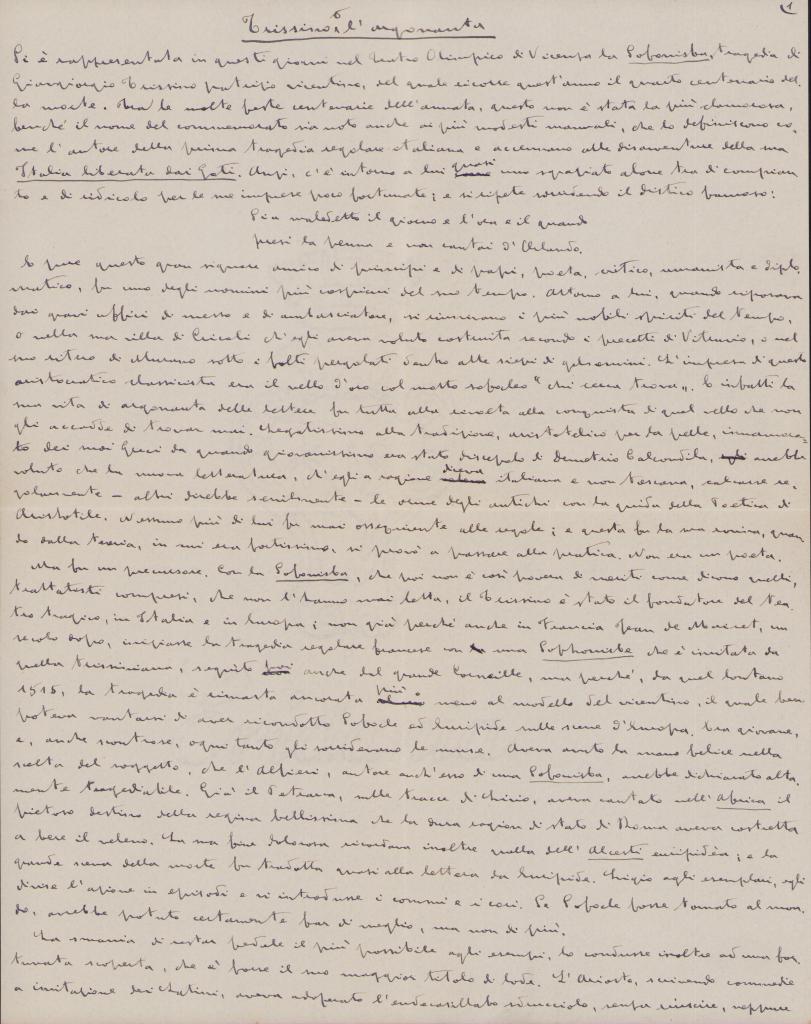 1
Trissino o l'argonauta
Si è rappresentata in questi giorni nel Teatro Olimpico di Vicenza la Sofonisba, tragedia di
Giangiorgio Trissino patrizio vicentino, del quale ricorre quest'anno il quarto centenario del
la morte. Tra le molte feste centenarie dell'annata, questo non è stata la più clamorosa,
benché il nome del commemorato sia noto anche ai più modesti manuali, che lo definiscono co
me l'autore della prima tragedia regolare italiana e accennano alle disavventure della sua
Italia liberata dai Goti. Anzi, c'è intorno a lui quasi uno sgraziato alone tra di compian
to e di ridicolo per le sue imprese poco fortunate; e si ripete sorridendo il distico famoso:
Sia maledetto il giorno e l'ora e il quando
presi la penna e non cantai d'Orlando.
E pure questo gran signore amico di principi e di papi, poeta, critico, umanista e diplo
matico, fu uno degli uomini più cospicui del suo tempo. Attorno a lui, quando riposava
dai gravi uffici di messo e di ambasciatore, si riunivano i più nobili spiriti del tempo,
o nella sua villa di Cricoli ch'egli aveva voluto costruita secondo i precetti di Vitruvio, o nel
suo ritiro di Murano sotto i folti pergolati dentro alte siepi di gelsomini. L'impresa di questo
aristocratico classicista era il vello d'oro col motto sofocleo "chi cerca trova". E infatti la
sua vita di argonauta delle lettere fu tutta alla cerca e alla conquista di quel vello che non
gli accadde di trovar mai. Legatissimo alla tradizione, aristotelico per la pelle, innamora-
to dei suoi Greci da quando giovanissimo era stato discepolo di Demetrio Calcondila, avrebbe
voluto che la nuova letteratura, ch'egli a ragione diceva italiana e non toscana, calcasse re
golarmente – altri direbbe servilmente – le orme degli antichi con la guida della Poetica di
Aristotile. Nessuno più di lui fu mai ossequiente alle regole; e questa fu la sua rovina, quan
do dalla teoria, in cui era fortissimo, si provò a passare alla pratica. Non era un poeta.
Ma fu un precursore. Con la Sofonisba, che poi non è così povera di meriti come dicono quelli,
trattatisti compresi, che non l'hanno mai letta, il Trissino è stato il fondatore del tea
tro tragico, in Italia e in Europa; non già perché anche in Francia Jean de Mairet, un
secolo dopo, iniziasse la tragedia regolare francese con una Sophonisbe che è imitata da
quella trissiniana, seguito anche dal grande Corneille, ma perché, da quel lontano
1515, la tragedia è rimasta ancorata più o meno al modello del vicentino, il quale ben
poteva vantarsi di aver ricondotto Sofocle ed Euripide sulle scene d'Europa. Era giovane,
e, anche scontrose, ogni tanto gli sorridevano le muse. Aveva avuto la mano felice nella
scelta del soggetto, che l'Alfieri, autore anch'esso di una Sofonisba, avrebbe dichiarato alta
mente tragediabile. Già il Petrarca, sulle tracce di Livio, aveva cantato nell'Africa il
pietoso destino della regina bellissima che la dura ragion di stato di Roma aveva costretta
a bere il veleno. La sua fine dolorosa ricordava inoltre quella dell'Alcesti euripidèa; e la
grande scena della morte fu tradotta quasi alla lettera da Euripide. Ligio agli esemplari, egli
divise l'azione in episodi e vi introdusse i commi e i cori. Se Sofocle fosse tornato al mon
do, avrebbe potuto certamente far di meglio, ma non di più.
La smania di restar fedele il più possibile agli esempi, lo condusse inoltre ad una for
tunata scoperta, che è forse il suo maggior titolo di lode. L'Ariosto, scrivendo commedie
a imitazione dei Latini, aveva adoperato l'endecasillabo sdrucciolo, senza riuscire, neppure